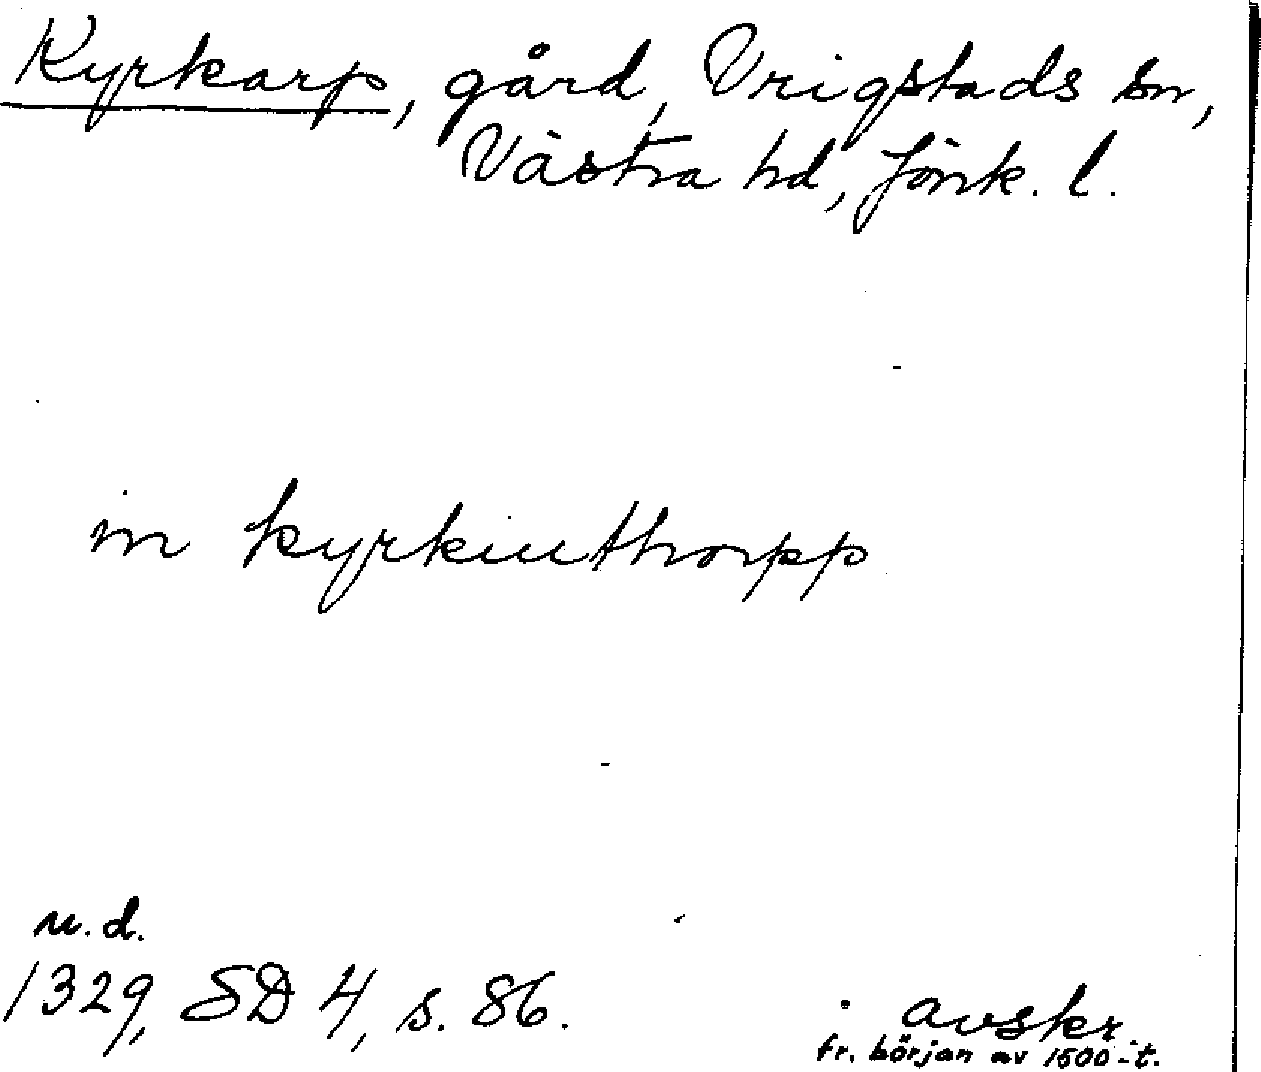 Kyrkarp, gård, Vrigstads sn,
Västra hd, Jönk. l.
in kyrkiuthorpp
u.d.
1329, SD 4, s. 86.
avskr.
fr. början av 1500-t.